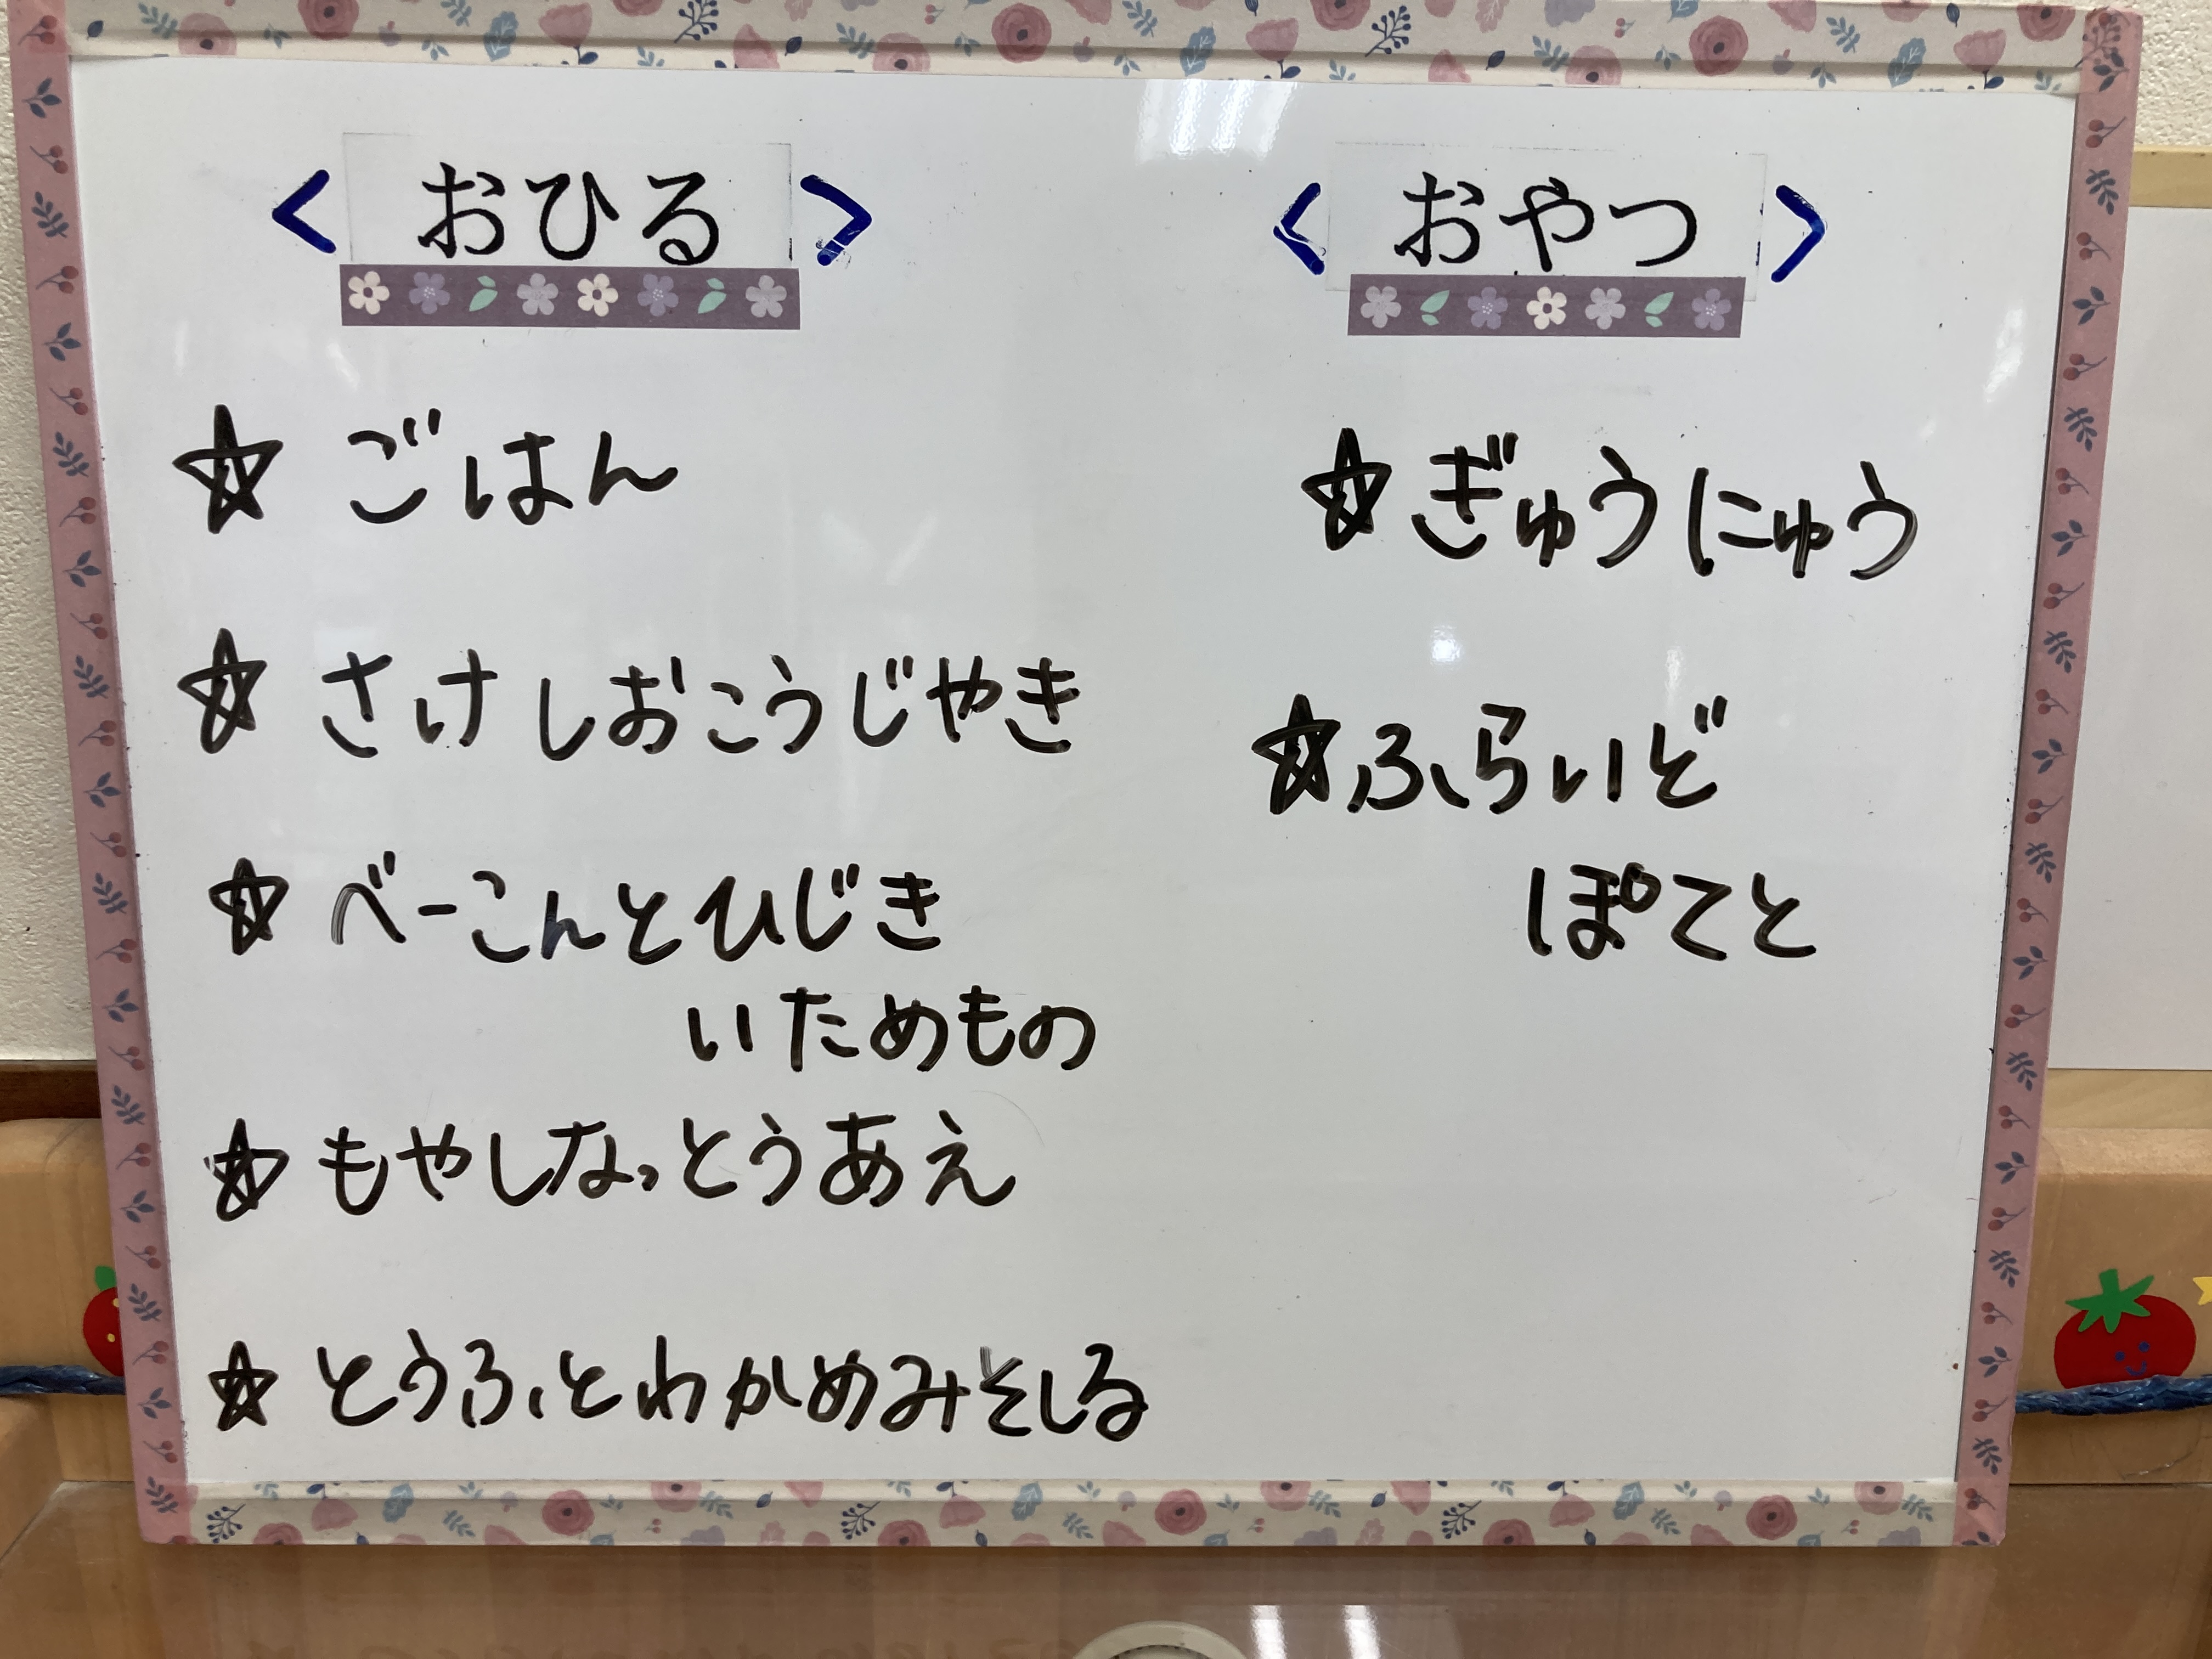 <おひる>
☆ ごはん
☆ さけしおこうじやき
☆ べーこんとひじき
いためもの
☆ もやしなっとうあえ
☆ とうふとわかめみそしる
<おやつ>
☆ ぎゅうにゅう
☆ ふらいど
ぽてと